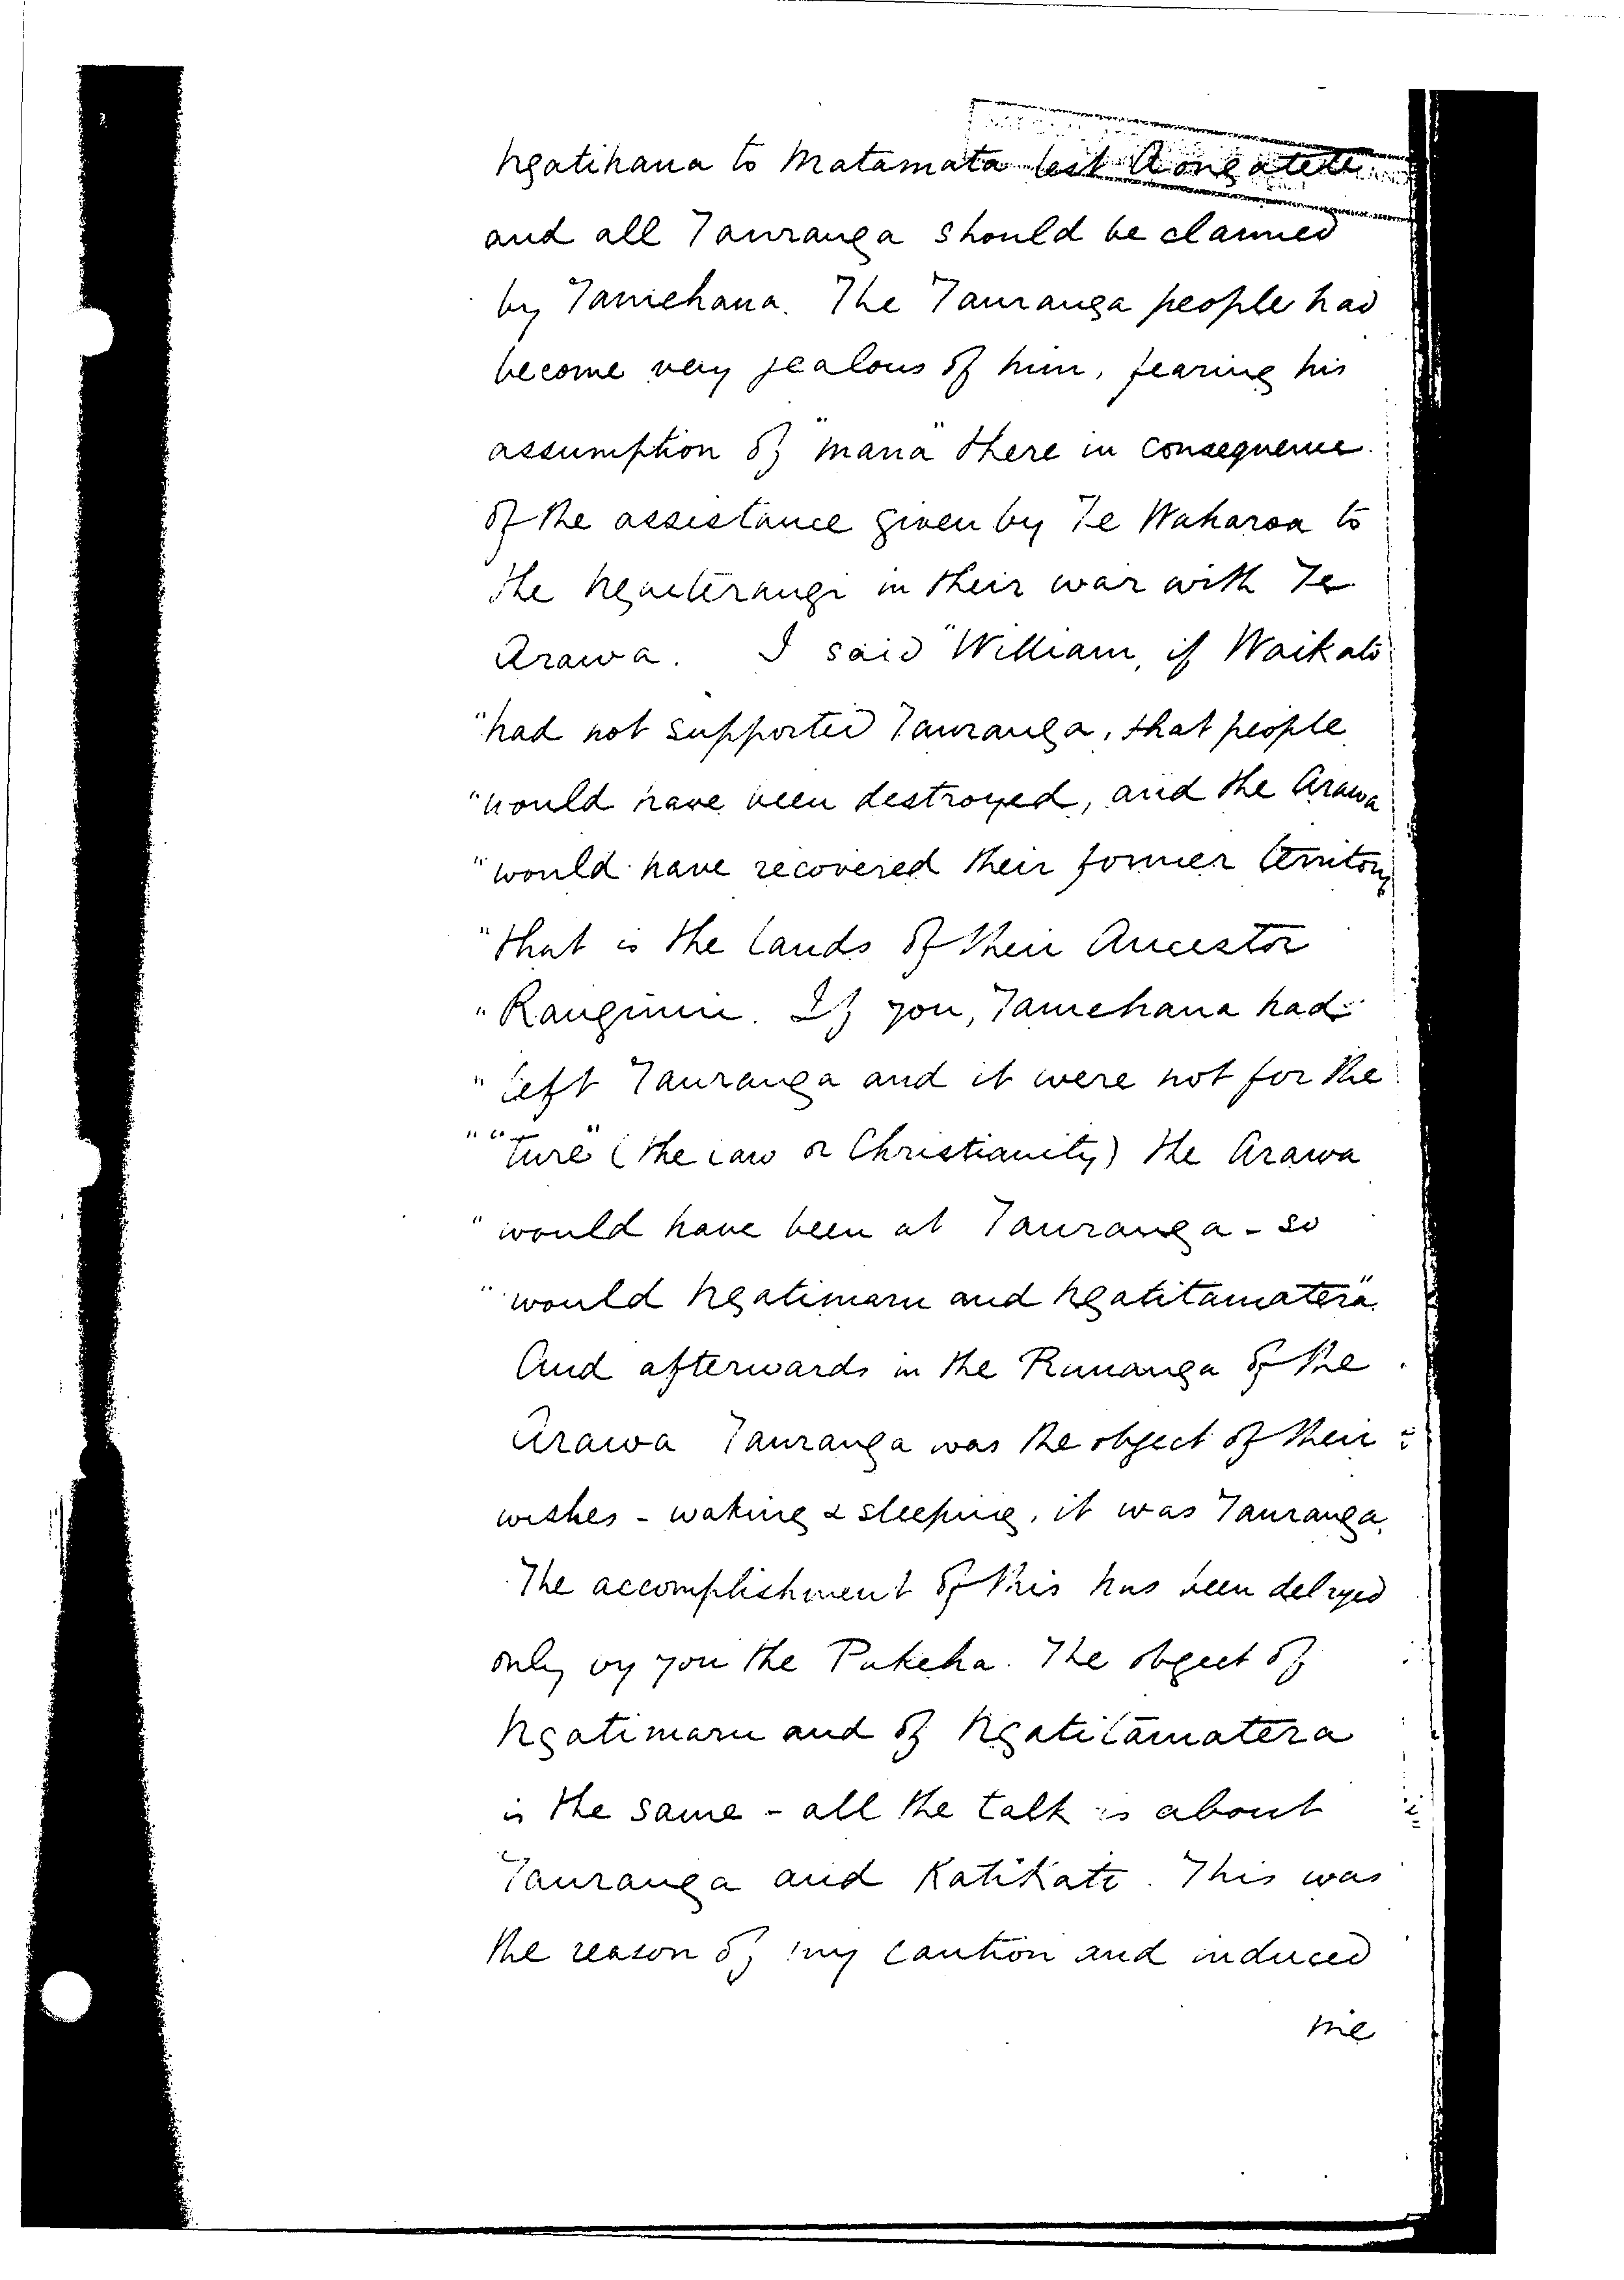 Ngatihaua to Matamata lest Aongatete
and all Tauranga should be claimed
by Tamehana. The Tauranga people had
become very jealous of him, fearing his
assumption of "mana" there in consequence
of the assistance given by Te Waharoa to
the Ngaiterangi in their war with Te
Arawa. I said "William, if Waikato
"had not supported Tauranga, that people
"would have been destroyed, and the Arawa
"would have recovered their former territory
"that is the lands of their Ancestor
"Ranginui. If you, Tamehana had
"left Tauranga and it were not for the
" "Ture" (the law or Christianity) the Arawa
"would have been at Tauranga - so
"would Ngatimaru and Ngatitamatera".
And afterwards in the Runanga of the
Arawa Tauranga was the object of their
wishes - waking & sleeping, it was Tauranga.
The accomplishment of this has been delayed
only by you the Pakeha. The object of
Ngatimaru and of Ngatitamatera
is the same - all the talk is about
Tauranga and Katikati. This was
the reason of my caution and induced
me